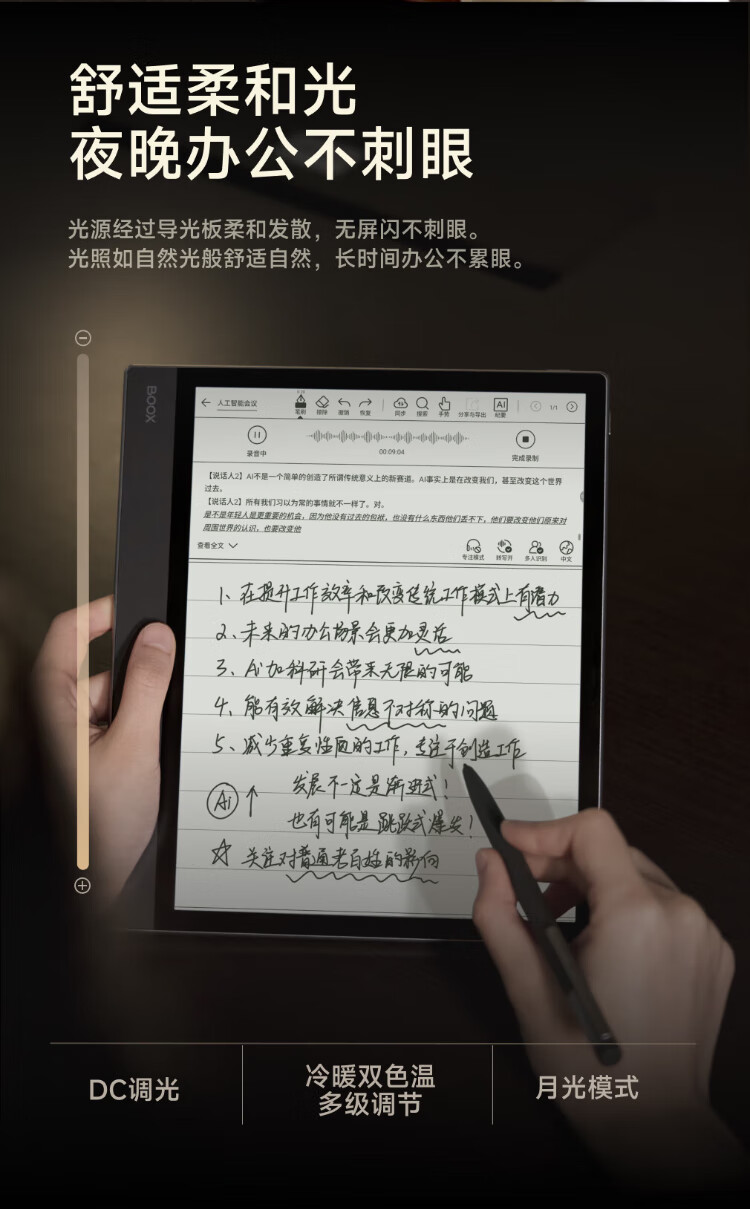 舒适柔和光
夜晚办公不刺眼
光源经过导光板柔和发散，无屏闪不刺眼。
光照如自然光般舒适自然，长时间办公不累眼。
BOOX
人工智能会议
笔刷 擦除 撤销 恢复 同步 搜索 手势 分享与导出 AI 1/1
录音中
00:09:04
完成录制
【说话人2】AI不是一个简单的创造了所谓传统意义上的新赛道。AI事实上是在改变我们，甚至改变这个世界
过去。
【说话人2】所有我们习以为常的事情就不一样了。对。
是不是年轻人是更重要的机会，因为他没有过去的包袱，也没有什么东西他们丢不下，他们要改变他们原来对
周围世界的认识，也要改变他
查看全文
专注模式 转写开 多人识别 中文
1、在提升工作效率和改变传统工作模式上有潜力
2、未来的办公场景会更加灵活
3、Ai加科研会带来无限的可能
4、能有效解决信息不对称的问题
5、减少重复性质的工作，专注于创造工作
Ai ↑ 发展不一定是渐进式！
也有可能是跳跃式爆炎！
☆ 关注对普通老百姓的影响
DC调光
冷暖双色温
多级调节
月光模式